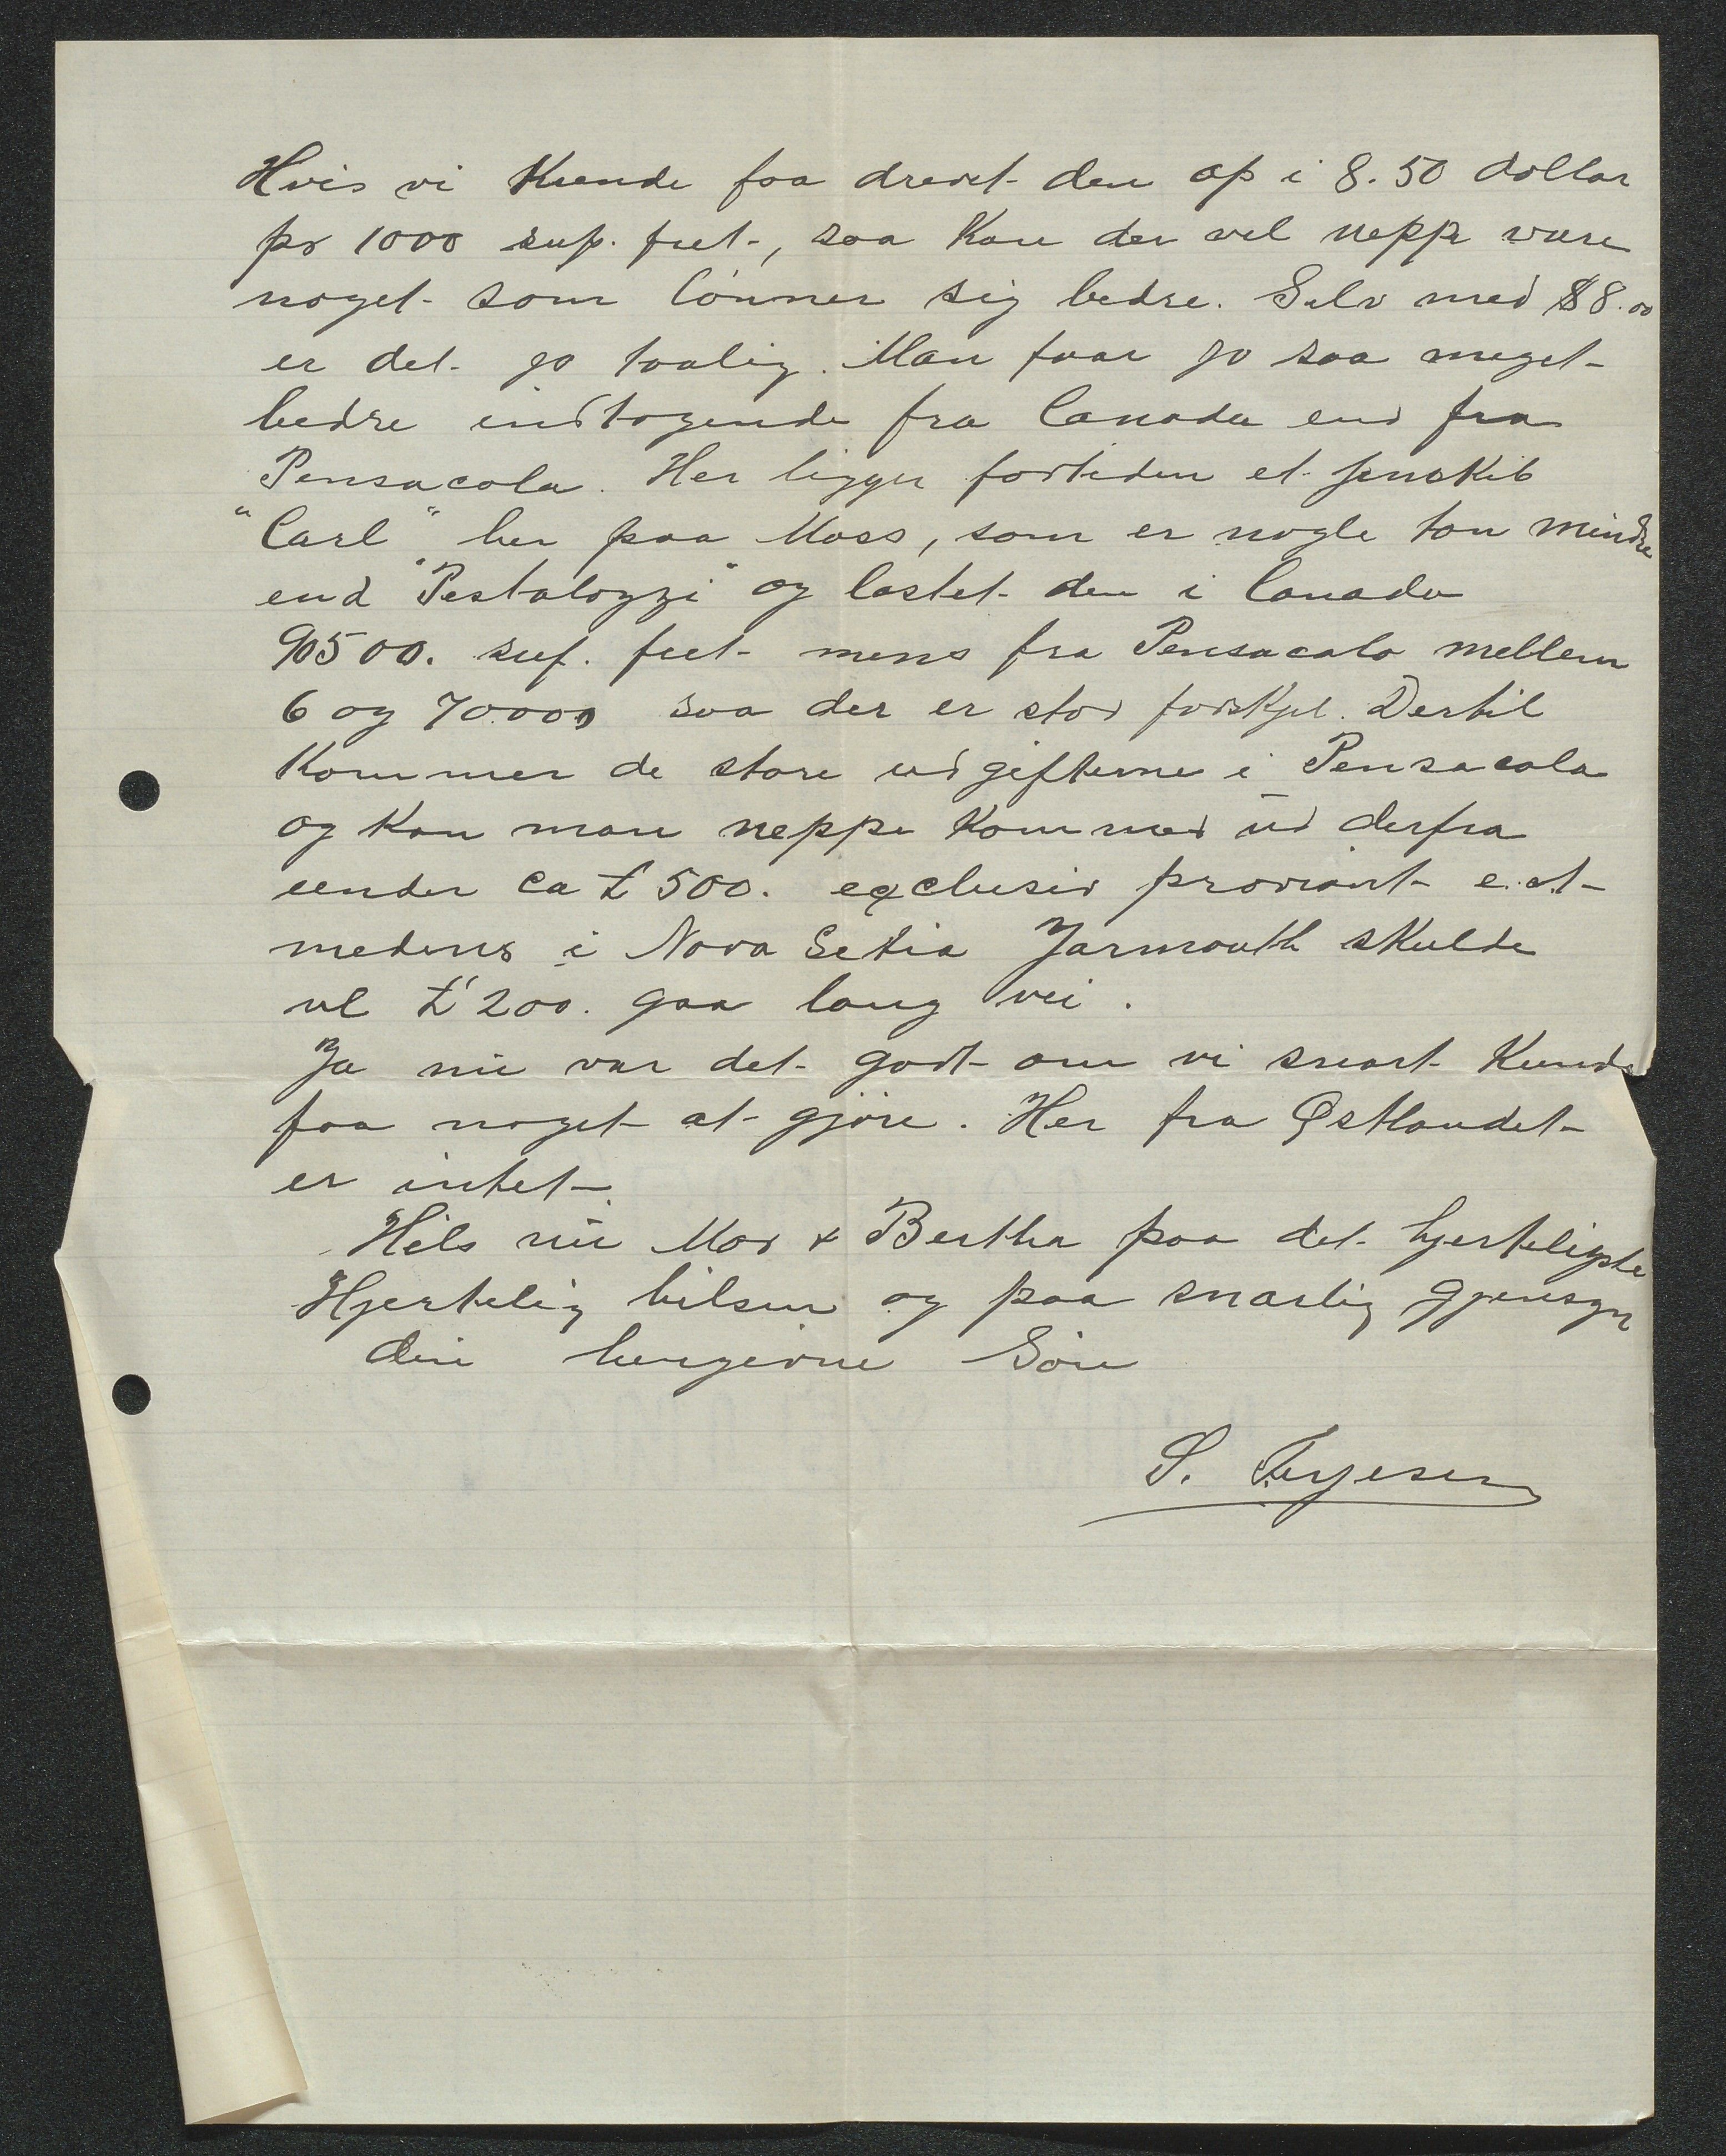 Hvis vi Kunde faa drevet den op i 8.50 dollar
pr 1000 sup. feet, saa kan der vel neppe være
noget som lønner sig bedre. Selv med $8.00
er det jo taalig. Man faar jo saa meget
bedre indtagende fra Canada end fra
Pensacola. Her ligger fortiden et jernskib
"Carl" her paa Moss, som er nogle ton mindre
end "Pestalozzi" og lastet den i Canada
90500. suf. feet mens fra Pensacola mellem
6 og 70.000 saa der er stor forskjel. Dertil
Kommer de store udgifterne i Pensacola
og kan man neppe komme ud derfra
under ca £ 500. exclusiv proviant e.ct
medens i Nova Scotia Yarmouth skulde
vel £ 200. gaa lang vei.
Ja nu var det godt om vi snart Kunde
faa noget at gjøre. Her fra Østlandet
er intet.
Hils nu Mor & Bertha paa det hjerteligste
Hjertelig hilsen og paa snarlig gjensyn
din hengivne Søn
S. Terjesen